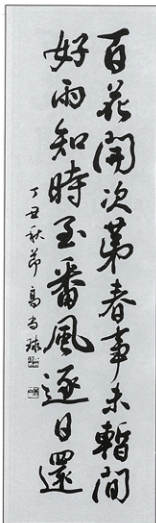 百花開次第春事未暫閒
好雨知時至番風逐日還
丁丑秋節 高南球